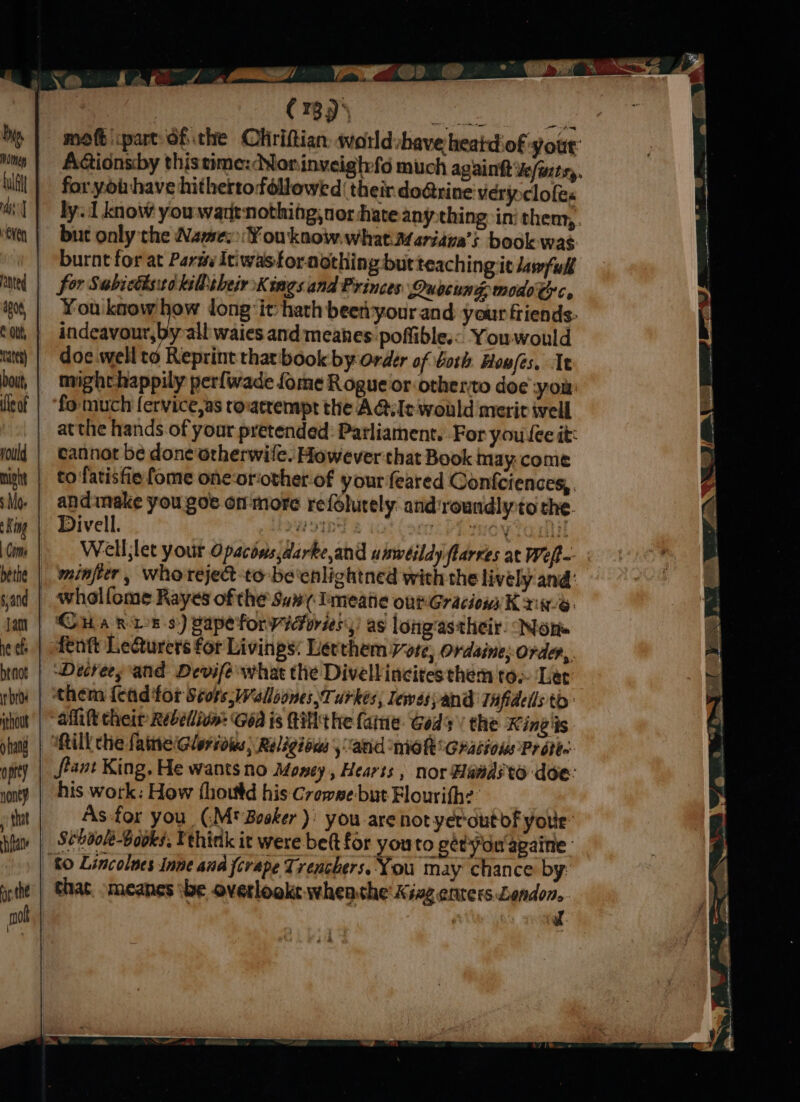 (13)
most part of the Christian world have heard of your
Actions by this time: Nor inveigh so much against Iesuits,
for you have hitherto followed their doctrine very close-
ly. I know you want nothing, nor hate any thing in them,
but only the Name. You know what Mariana's book was
burnt for at Paris. It was for nothing but teaching it lawfull
for Subiects to kill their Kings and Princes Quocunq; modo &c,
You know how long it hath been your and your friends
indeavour, by all waies and meanes possible. You would
doe well to Reprint that book by Order of both Houses. It
might happily perswade some Rogue or other to doe you
so much service, as to attempt the Act. It would merit well
at the hands of your pretended Parliament. For you see it
cannot be done otherwise. However that Book may come
to satisfie some one or other of your seared Consciences,
and make you goe on more resolutely and roundly to the
Divell.
Well, let your Opacous, darke, and unweildy starres at West-
minster, who reject to be enlightned with the lively and
wholsome Rayes of the Sun (I meane our Gracious KING
CHARLES) gape for Victories, as long as their Non-
senst Lecturers for Livings. Let them Vote, Ordaine, Order,
Decree, and Devise what the Divell incites them to. Let
them send for Scots, Walloones, Turkes, Iewes, and Infidells to
assist their Rebellion: God is still the same God; the King is
still the same Glorious, Religious, and most Gracious Prote-
stant King. He wants no Money, Hearts, nor Hands to doe
his work: How should his Crowne but Flourish?
As for you (Mr Booker) you are not yet out of your
Schoole-Books, I think it were best for you to get you againe
to Lincolnes Inne and scrape Trenchers. You may chance by
that meanes be overlookt when the King enters London,